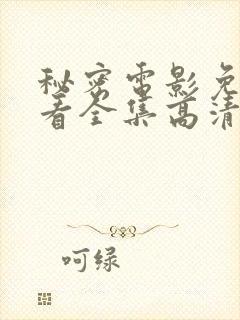 秘密电影免
看全集高清
呵绿